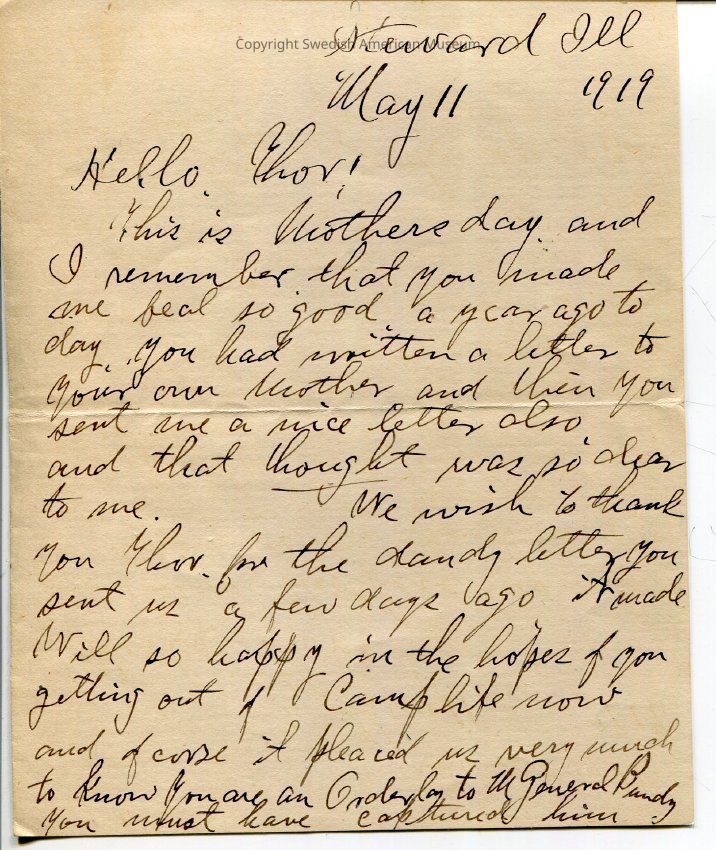 Copyright Swedish American Museum
Steward Ill
May 11 1919
Hello Thor!
This is Mothers day and
I remember that you made
me feal so good a year ago to
day, you had written a letter to
your own Mother and then you
sent me a nice letter also
and that thought was so dear
to me. We wish to thank
you Thor for the dandy letter you
sent us a few days ago it made
Will so happy in the hopes of you
getting out of Camp life now
and of corse it pleaced us very much
to Know You are an Orderley to M General
you must have captured him